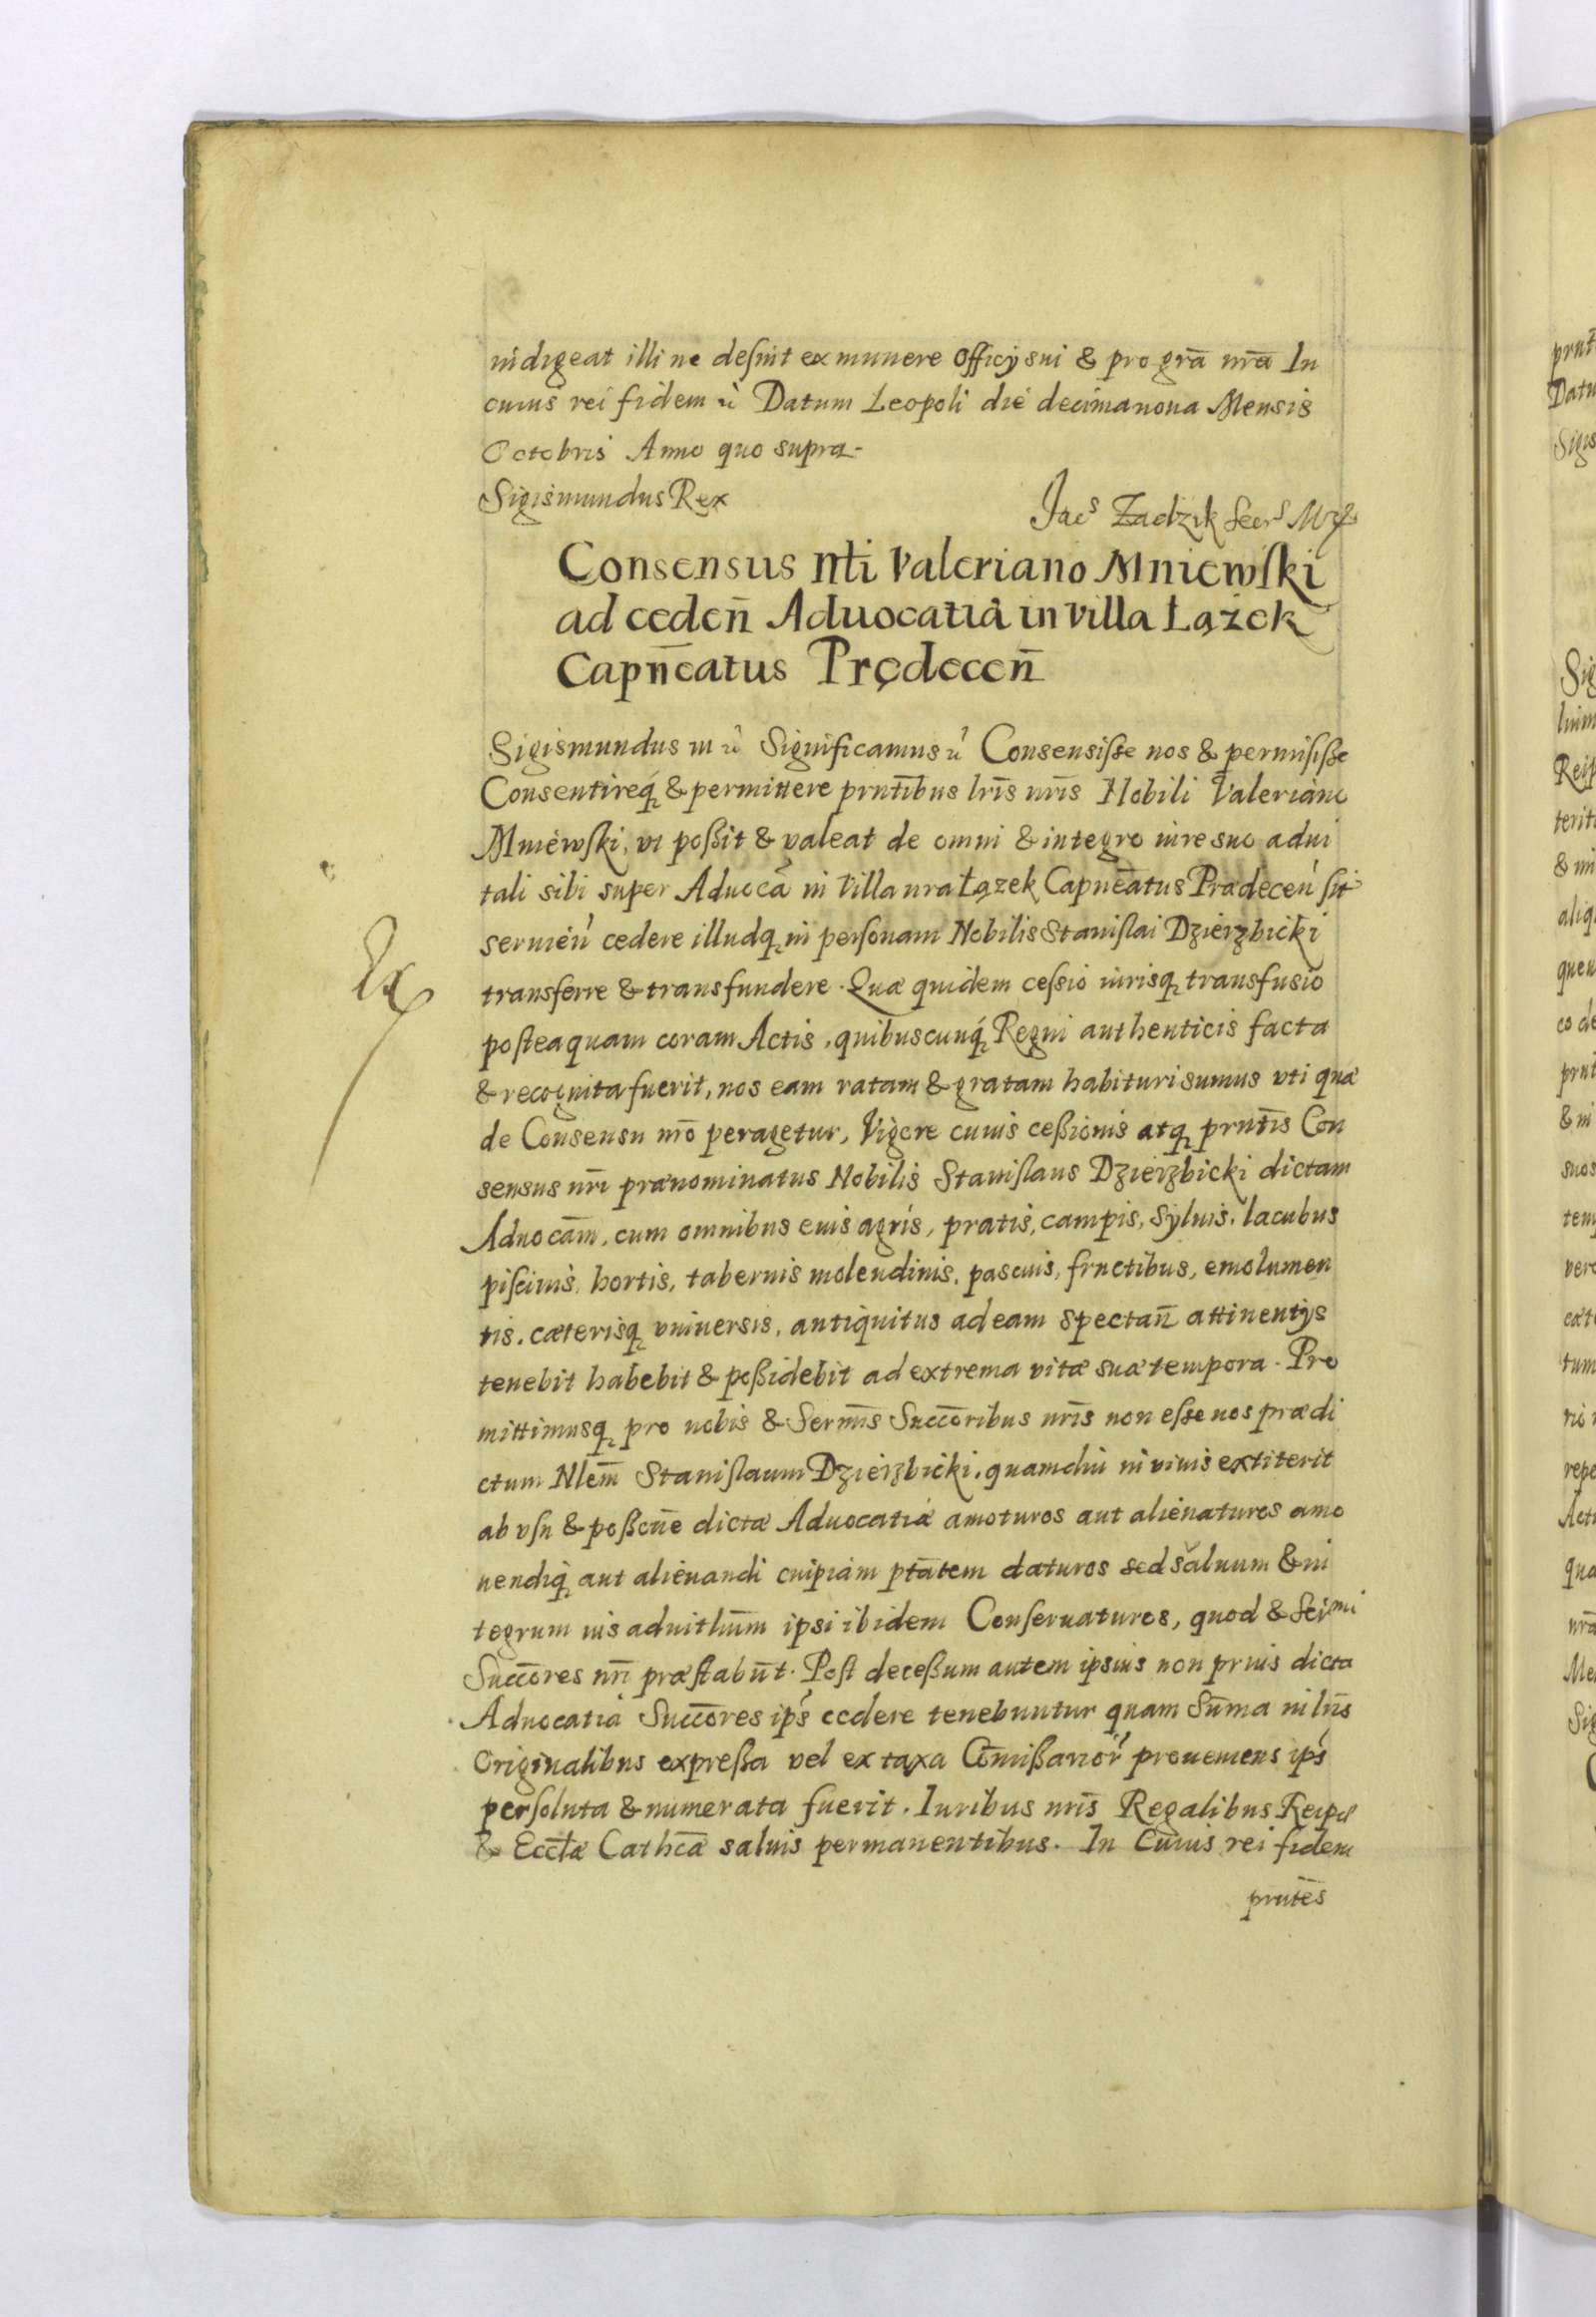 indigeat illi ne desint ex munere Officÿ sui & pro grã nrã In
cuius rei fidem ñ Datum Leopoli die decimanona Mensis
Octobris Anno quo supra.
Sigismundus Rex
Jacs Zadzik Secrs Mgr
Consensus Nti Valeriano Mniewſki
ad ceden̄ Aduocatiã in Villa Łążek
Capn̄eatus Prędecen̄
Sigismundus III ñ Significamus ñ Consensiſſe nos & permiſiſſe
Consentireq & permittere prntibus lris nris Nobili Valeriano
Mniewſki, vt poßit & valeat de omni & integro iure suo adui
tali sibi super Aduocã in Villa nra Łązek Capneatus Prædecen̄ ſit
seruien̄ cedere illudq in perſonam Nobilis Staniſlai Dzierzbicki
transferre & transfundere. Quæ quidem ceſsio iurisq transfusio
poſteaquam coram Actis, quibuscunq Regni authenticis facta
& recognita fuerit, nos eam ratam & gratam habituri sumus vti quæ
de Consensu nrõ peragetur, Vigore cuius ceßionis atq prntis Con
sensus nri prænominatus Nobilis Staniſlaus Dzierzbicki dictam
Aduocãm, cum omnibus euis agris, pratis, campis, Syluis, lacubus
piſcinis, hortis, tabernis molendinis, pascuis, fructibus, emolumen
tis, cæterisq vniuersis, antiquitus ad eam spectan̄ attinentÿs
tenebit habebit & poßidebit ad extrema vitæ suæ tempora. Pro
mittimusq pro nobis & Sermis Succōribus nris non eſse nos prædi
ctum Nlem̄ Staniſlaum Dzierzbicki, quamdiu in viuis extiterit
ab vſu & poßeſne dictæ Aduocatiæ amoturos aut alienaturos amo
uendiq aut alienandi cuipiam ptãtem daturos sed saluum & in
tegrum ius aduitlium ipsi ibidem Conſeruaturos, quod & Sermi
Succōres nri præſtabunt. Poſt deceßum autem ipsius non prius dicta
Aduocatia Succōres ips cedere tenebuntur quam Sum̄a in lris
Originalibus expreßa vel ex taxa Com̄ißarior̄ proueniens ips
perſoluta & numerata fuerit. Iuribus nris Regalibus Reipcæ
& Eccłæ Cathcæ saluis permanentibus. In Cuius rei fidem
prntes